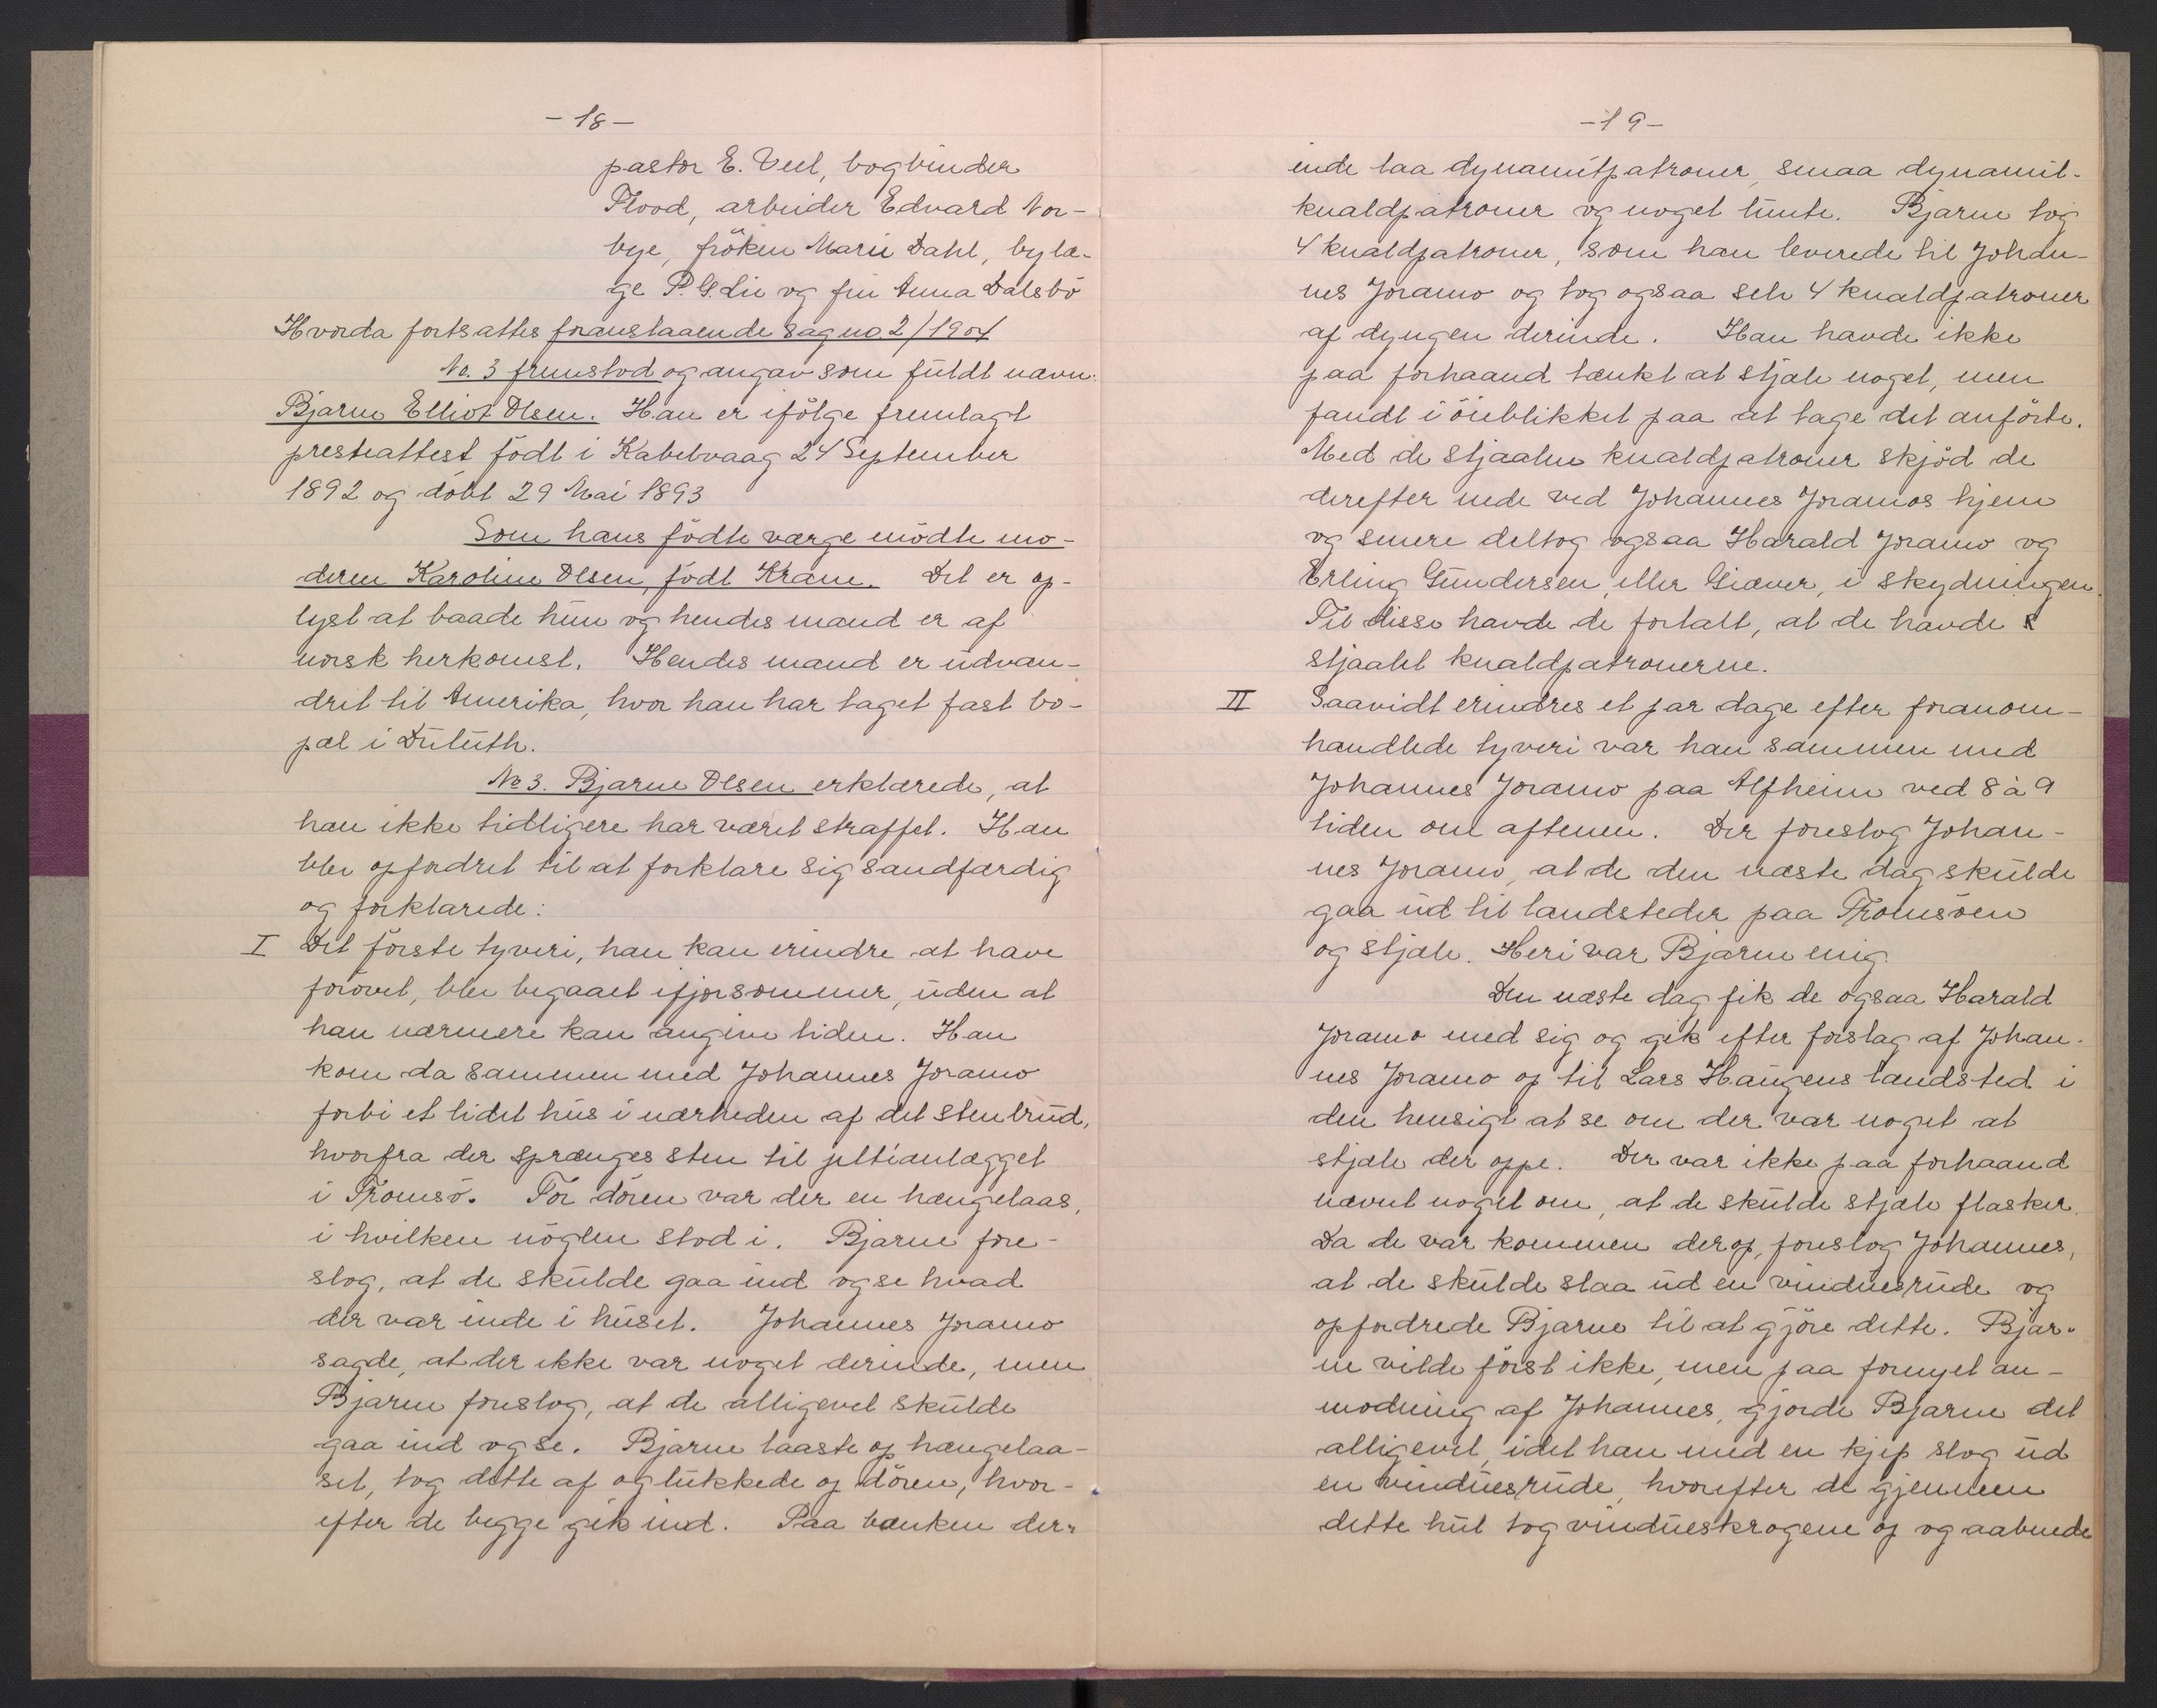 - 18 -
pastor E. Veel, bogbinder
Flood, arbeider Edvard Nor-
bye, fröken Marie Dahl, bylæ-
ge P. G. Lie og fru Anna Dalsbö
Hvorda fortsattes foranstaaende sag no. 2/1904
No. 3 fremstod og angav som fuldt navn:
Bjarne Elliot Olsen. Han er ifölge fremlagt
presteattest födt i Kabelvaag 24 September
1892 og döbt 29 Mai 1893
Som hans födte værge mödte mo-
deren Karoline Olsen, födt Krane. Det er op-
lyst at baade hun og hendes mand er af
norsk herkomst. Hendes mand er udvan-
dret til Amerika, hvor han har taget fast bo-
pæl i Duluth.
No 3. Bjarne Olsen erklærede, at
han ikke tidligere har været straffet. Han
blev opfordret til at forklare sig sandfærdig
og forklarede:
I Det förste tyveri, han kan erindre at have
forövet, blev begaaet ifjorsommer, uden at
han nærmere kan angive tiden. Han
kom da sammen med Johannes Joramo
forbi et lidet hus i nærheden af det stenbrud,
hvorfra der sprænges sten til jeltéanlægget
i Tromsö. For dören var der en hængelaas,
i hvilken nöglen stod i. Bjarne fore-
slog, at de skulde gaa ind og se hvad
der var inde i huset. Johannes Joramo
sagde, at der ikke var noget derinde, men
Bjarne foreslog, at de alligevel skulde
gaa ind og se. Bjarne laaste op hængelaa-
set, tog dette af og lukkede op dören, hvor-
efter de begge gik ind. Paa bænken der-
- 19 -
inde laa dynamitpatroner, smaa dynamit-
knaldpatroner og noget lunte. Bjarne tog
4 knaldpatroner, som han leverede til Johan-
nes Joramo og tog ogsaa selv 4 knaldpatroner
af dyngen derinde. Han havde ikke
paa forhaand tænkt at stjæle noget, men
fandt i öieblikket paa at tage det anförte.
Med de stjaalne knaldpatroner skjöd de
derefter nede ved Johannes Joramos hjem
og senere deltog ogsaa Harald Joramo og
Erling Gundersen, eller Giæver, i skydningen.
Til disse havde de fortalt, at de havde
stjaalet knaldpatronerne.
II Saavidt erindres et par dage efter foranom-
handlede tyveri var han sammen med
Johannes Joramo paa Alfheim ved 8 à 9
tiden om aftenen. Der foreslog Johan-
nes Joramo, at de den næste dag skulde
gaa ud til landsteder paa Tromsöen
og stjæle. Heri var Bjarne enig.
Den næste dag fik de ogsaa Harald
Joramo med sig og gik efter forslag af Johan-
nes Joramo op til Lars Haugens landsted i
den hensigt at se om der var noget at
stjæle der oppe. Der var ikke paa forhaand
nævnt noget om, at de skulde stjæle flasker.
Da de var kommen derop, foreslog Johannes,
at de skulde slaa ud en vinduesrude og
opfordrede Bjarne til at gjöre dette. Bjar-
ne vilde först ikke, men paa fornyet an-
modning af Johannes, gjorde Bjarne det
alligevel, idet han med en kjep slog ud
en vinduesrude, hvorefter de gjennem
dette hul tog vindueskrogene op og aabnede